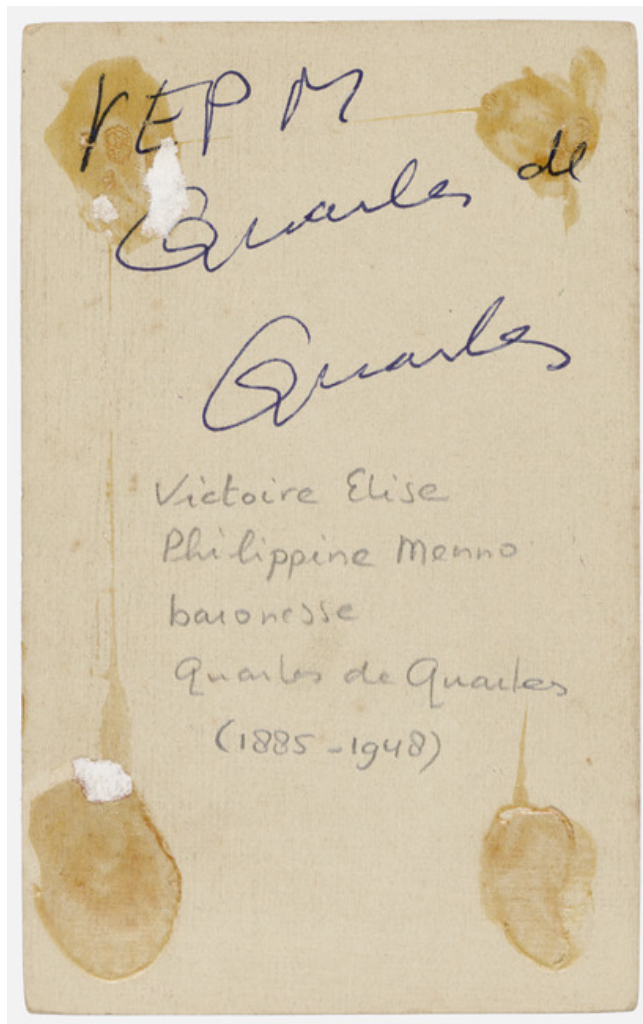 VEPM
Quarles de
Quarles
Victoire Elise
Philippine Menno
baronesse
Quarles de Quarles
(1885-1948)